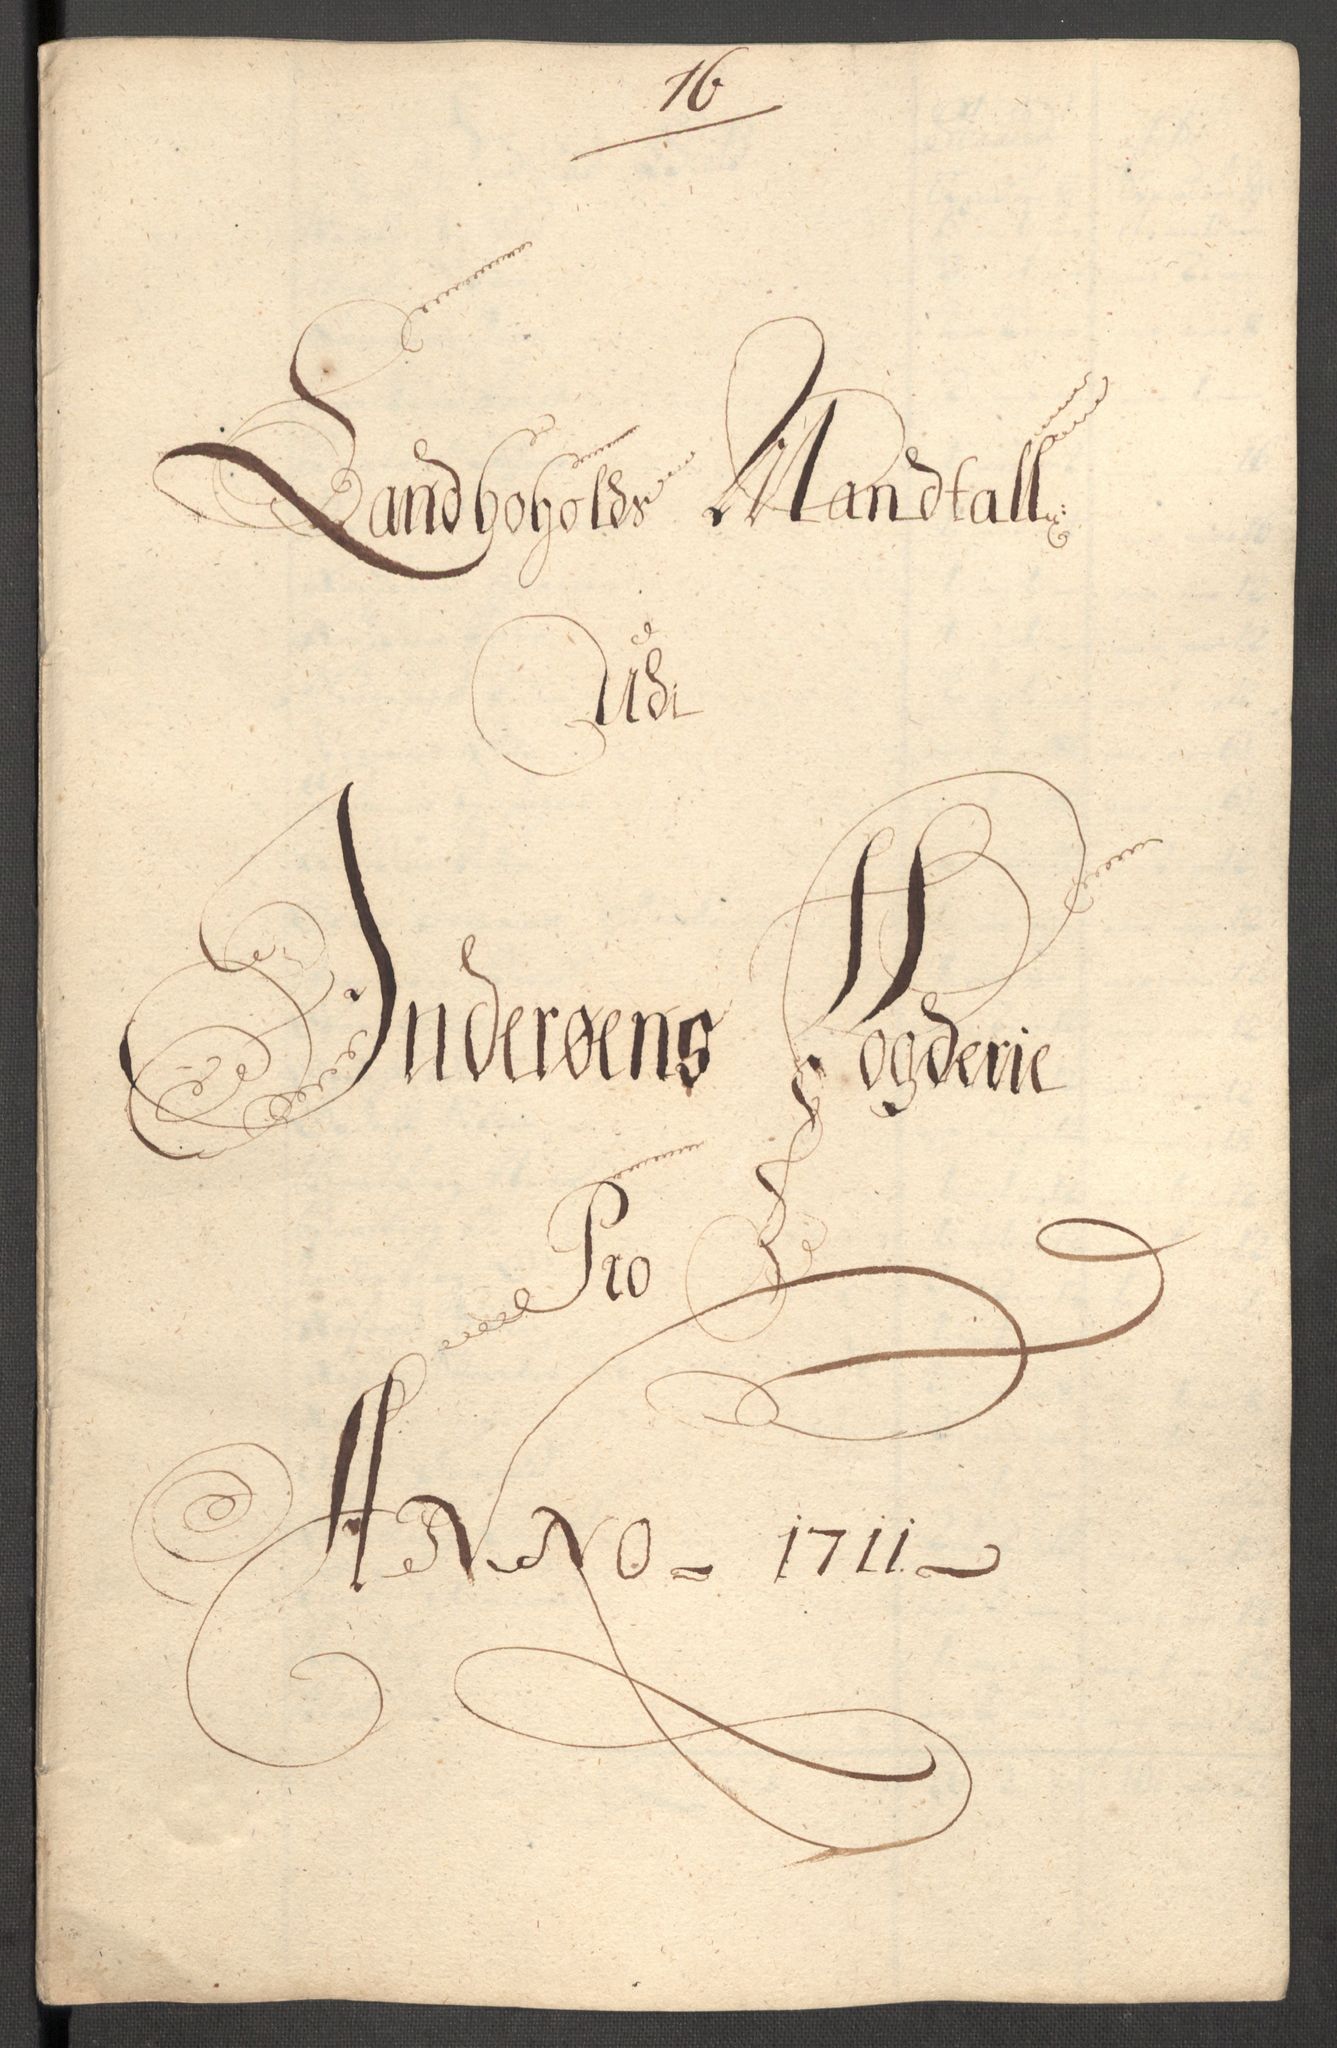 16
Landboholds Mandtall
Udi
Inderøens Fogderie
Pro
ANNO 1711